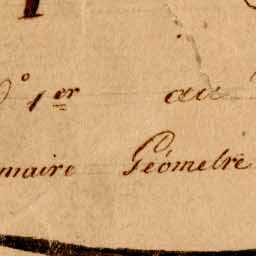 1er au
maire Géometre